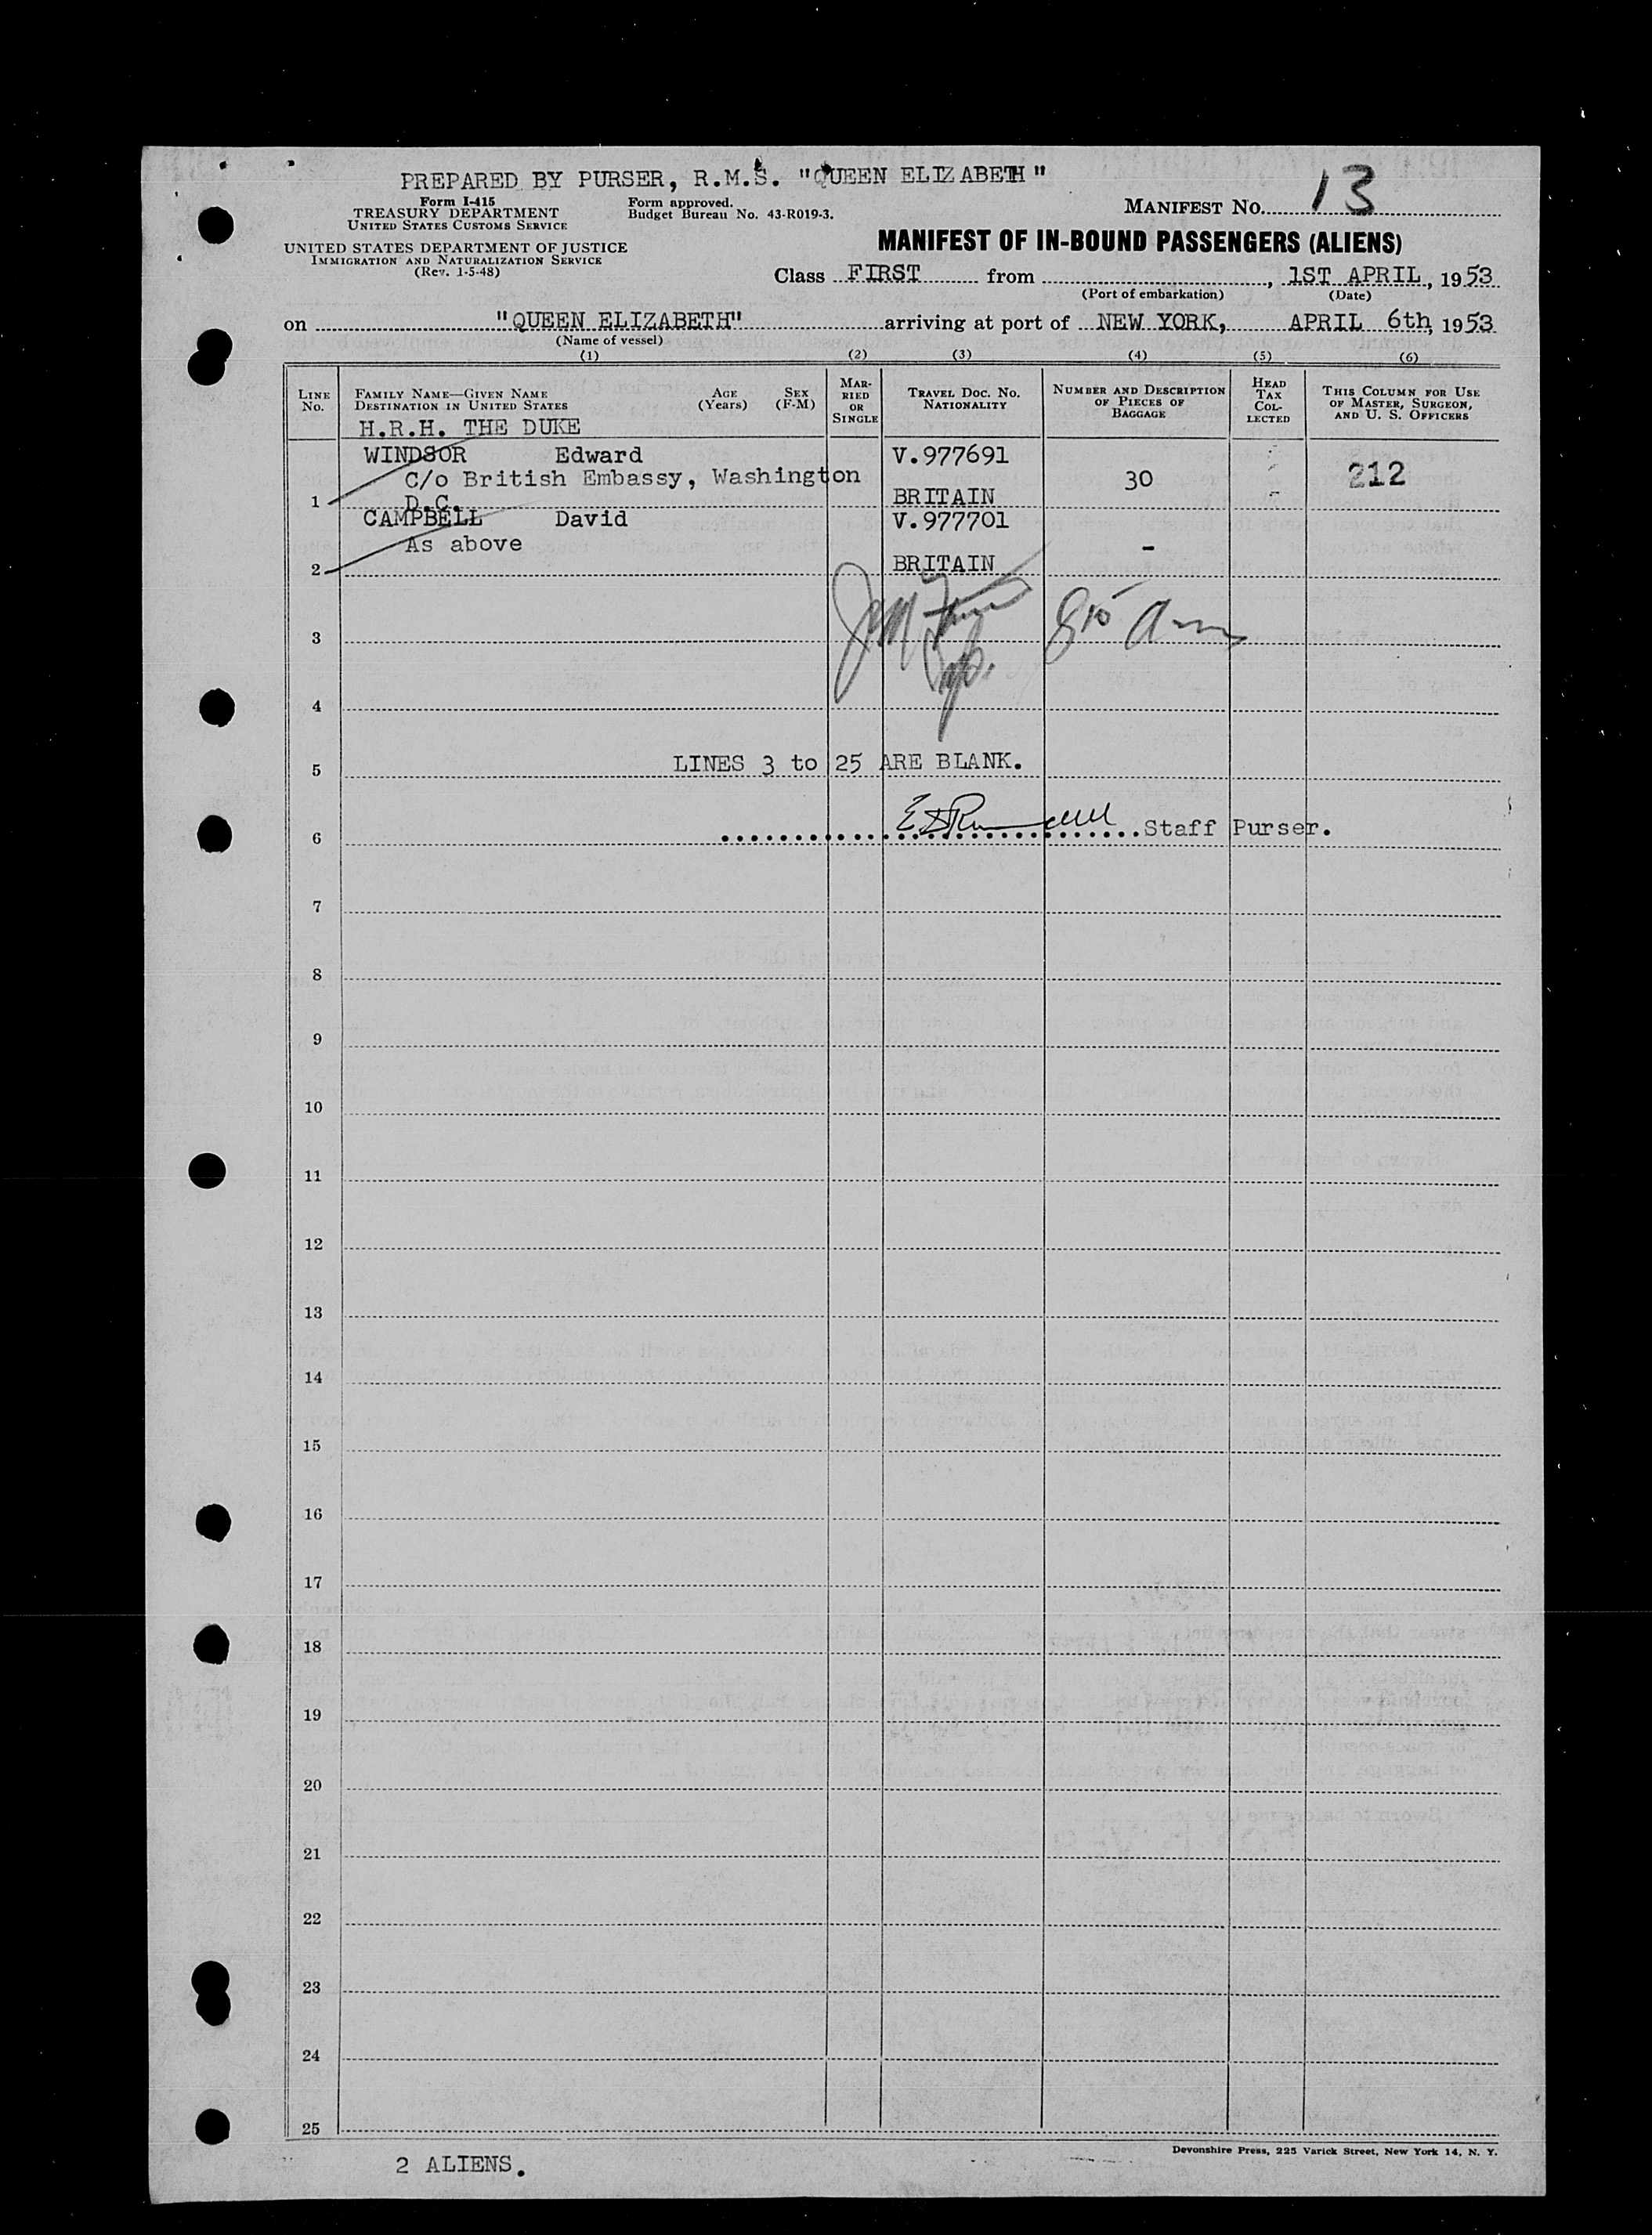 PREPARED BY PURSER, R.M.S. "QUEEN ELIZABETH"
13
Form I-415
TREASURY DEPARTMENT
UNITED STATES CUSTOMS SERVICE
Form approved.
Budget Bureau No. 43-R019-3.
MANIFEST NO.
UNITED STATES DEPARTMENT OF JUSTICE
IMMIGRATION AND NATURALIZATION SERVICE
(Rev. 1-5-48)
MANIFEST OF IN-BOUND PASSENGERS (ALIENS)
Class FIRST from , 1ST APRIL, 1953
(Port of embarkation) (Date)
on "QUEEN ELIZABETH" arriving at port of NEW YORK, APRIL 6th, 1953
(Name of vessel)
(1) (2) (3) (4) (5) (6)
LINE No.
FAMILY NAME—GIVEN NAME
DESTINATION IN UNITED STATES
AGE (Years)
SEX (F-M)
MARRIED OR SINGLE
TRAVEL DOC. NO.
NATIONALITY
NUMBER AND DESCRIPTION OF PIECES OF BAGGAGE
HEAD TAX COLLECTED
THIS COLUMN FOR USE OF MASTER, SURGEON, AND U. S. OFFICERS
H.R.H. THE DUKE
WINDSOR Edward V.977691
C/o British Embassy, Washington 30 212
1 D.C. BRITAIN
CAMPBELL David V.977701
As above -
2 BRITAIN
3
4
5 LINES 3 to 25 ARE BLANK.
6 Staff Purser.
7
8
9
10
11
12
13
14
15
16
17
18
19
20
21
22
23
24
25
Devonshire Press, 225 Varick Street, New York 14, N. Y.
2 ALIENS.